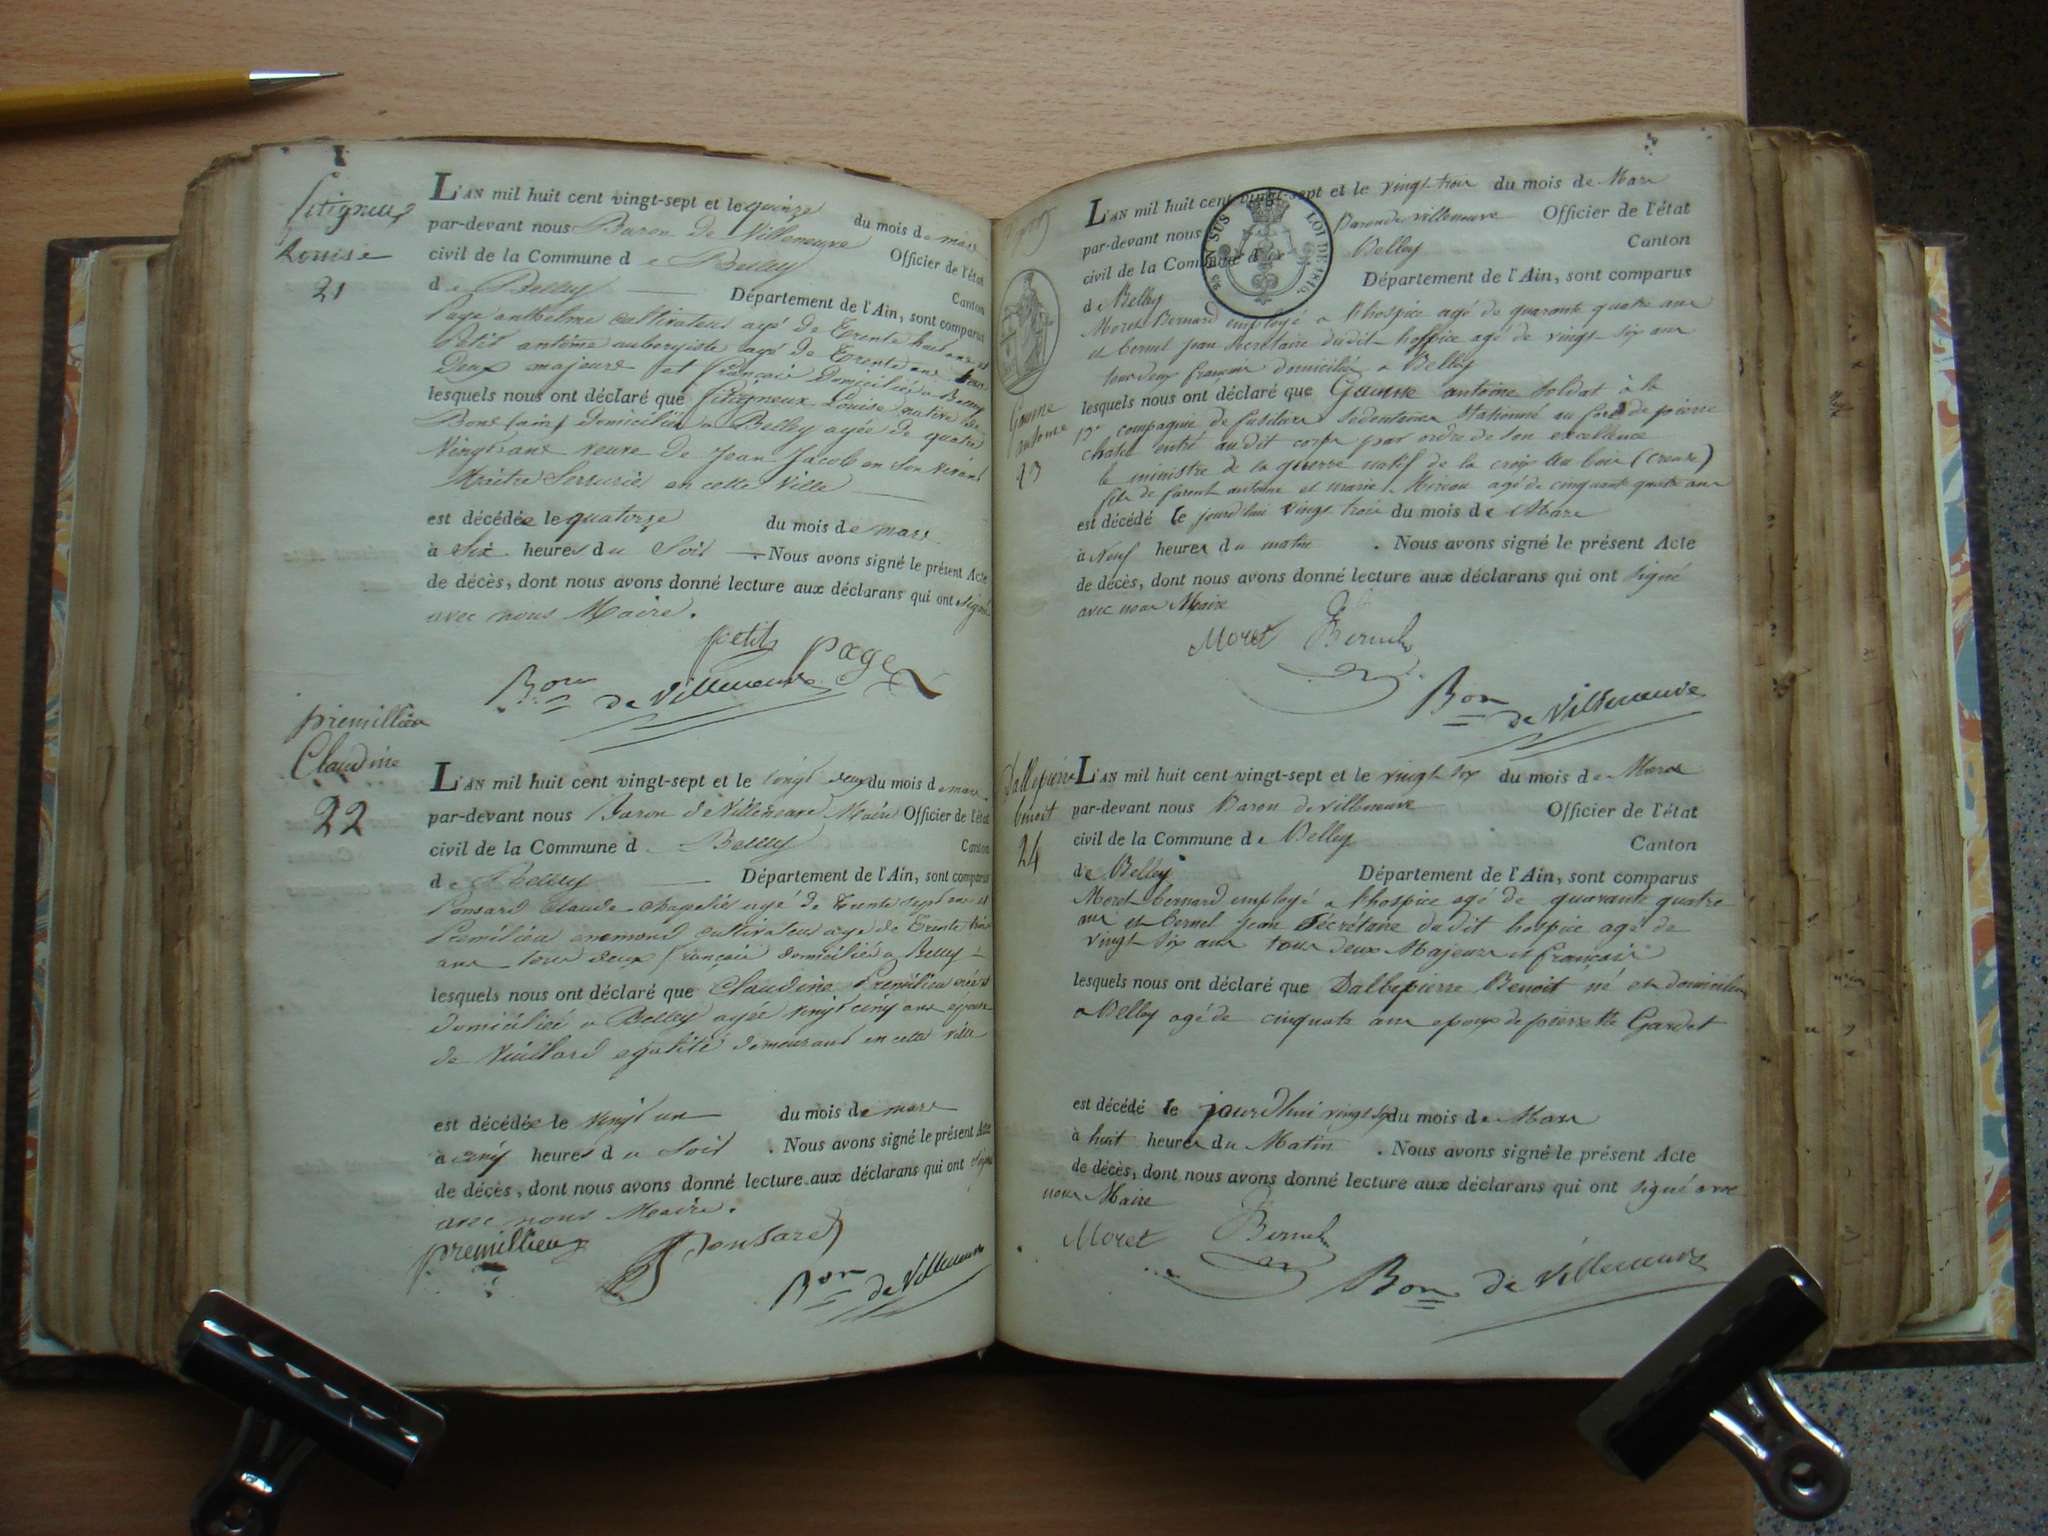 Louise
21
L'AN mil huit cent vingt-sept et le quinze du mois de mars
par-devant nous Baron de Villeneuve Officier de l'état
civil de la Commune de Belley Canton
de Belley Département de l'Ain, sont comparus
Page anthelme cultivateur agé de Trente huit ans et
Petit antême aubergiste agé de Trente ans tous
Deux majeurs et français Domiciliés a Belley
lesquels nous ont déclaré que Louise native de
Bons (ain) Domiciliée a Belley agée de quatre
Vingt ans veuve de Jean Jacob en son vivant
Maitre Serrurier en cette Ville
est décédée le quatorze du mois de mars
à Six heures du Soir . Nous avons signé le présent Acte
de décès, dont nous avons donné lecture aux déclarans qui ont signé
avec nous Maire.
petit page
Bon de Villeneuve
premillieu
Claudine
22
L'AN mil huit cent vingt-sept et le vingt deux du mois de mars
par-devant nous Baron de Villeneuve Maire Officier de l'état
civil de la Commune d Belley Canton
de Belley Département de l'Ain, sont comparus
Ponsard Claude chapelier agé de Trente Sept ans et
Premilieu enemond cultivateur agé de Trente trois
ans tous deux français domiciliés a Belley
lesquels nous ont déclaré que Claudine Premilieu née et
domiciliée a Belley agée vingt cinq ans epouse
de Vuillard demeurant en cette ville
est décédée le vingt un du mois de mars
à cinq heures du Soir . Nous avons signé le présent Acte
de décès, dont nous avons donné lecture aux déclarans qui ont signé
avec nous Maire.
premillieu Ponsard
Bon de Villeneuve
95 EN SUS LOI DE 1816
antoine
23
L'AN mil huit cent vingt-sept et le vingt trois du mois de Mars
par-devant nous Baron de villeneuve Officier de l'état
civil de la Commune de Belley Canton
de Belley Département de l'Ain, sont comparus
Moret Bernard employé a l'hospice agé de quarante quatre ans
et bernel jean secretaire dudit hospice agé de vingt six ans
tous deux français domiciliés a Belley
lesquels nous ont déclaré que antoine Soldat à la
12e compagnie de fusiliers sedentaires stationné au fort de pierre
chatel entré audit corps par ordre de son excellence
le ministre de la guerre natif de la croix au bois (creuse)
fils de antoine et marie agé de cinquante quatre ans
est décédé le jourd'hui vingt trois du mois de Mars
à Neuf heures du matin . Nous avons signé le présent Acte
de décès, dont nous avons donné lecture aux déclarans qui ont signé
avec nous Maire
Moret Bernel
Bon de Villeneuve
Dallepierre
benoit
24
L'AN mil huit cent vingt-sept et le vingt six du mois de Mars
par-devant nous Baron de villeneuve Officier de l'état
civil de la Commune de Belley Canton
de Belley Département de l'Ain, sont comparus
Moret bernard employé a l'hospice agé de quarante quatre
ans et bernel jean Sécrétaire dudit hospice agé de
vingt six ans tous deux Majeurs et français
lesquels nous ont déclaré que Dalbepierre Benoit né et domicilié
a Belley agé de cinquante ans epoux de pierrette Gardet
est décédé le jourd'hui vingt six du mois de Mars
à huit heures du Matin . Nous avons signé le présent Acte
de décès, dont nous avons donné lecture aux déclarans qui ont signé avec
nous Maire
Moret Bernel
Bon de Villeneuve